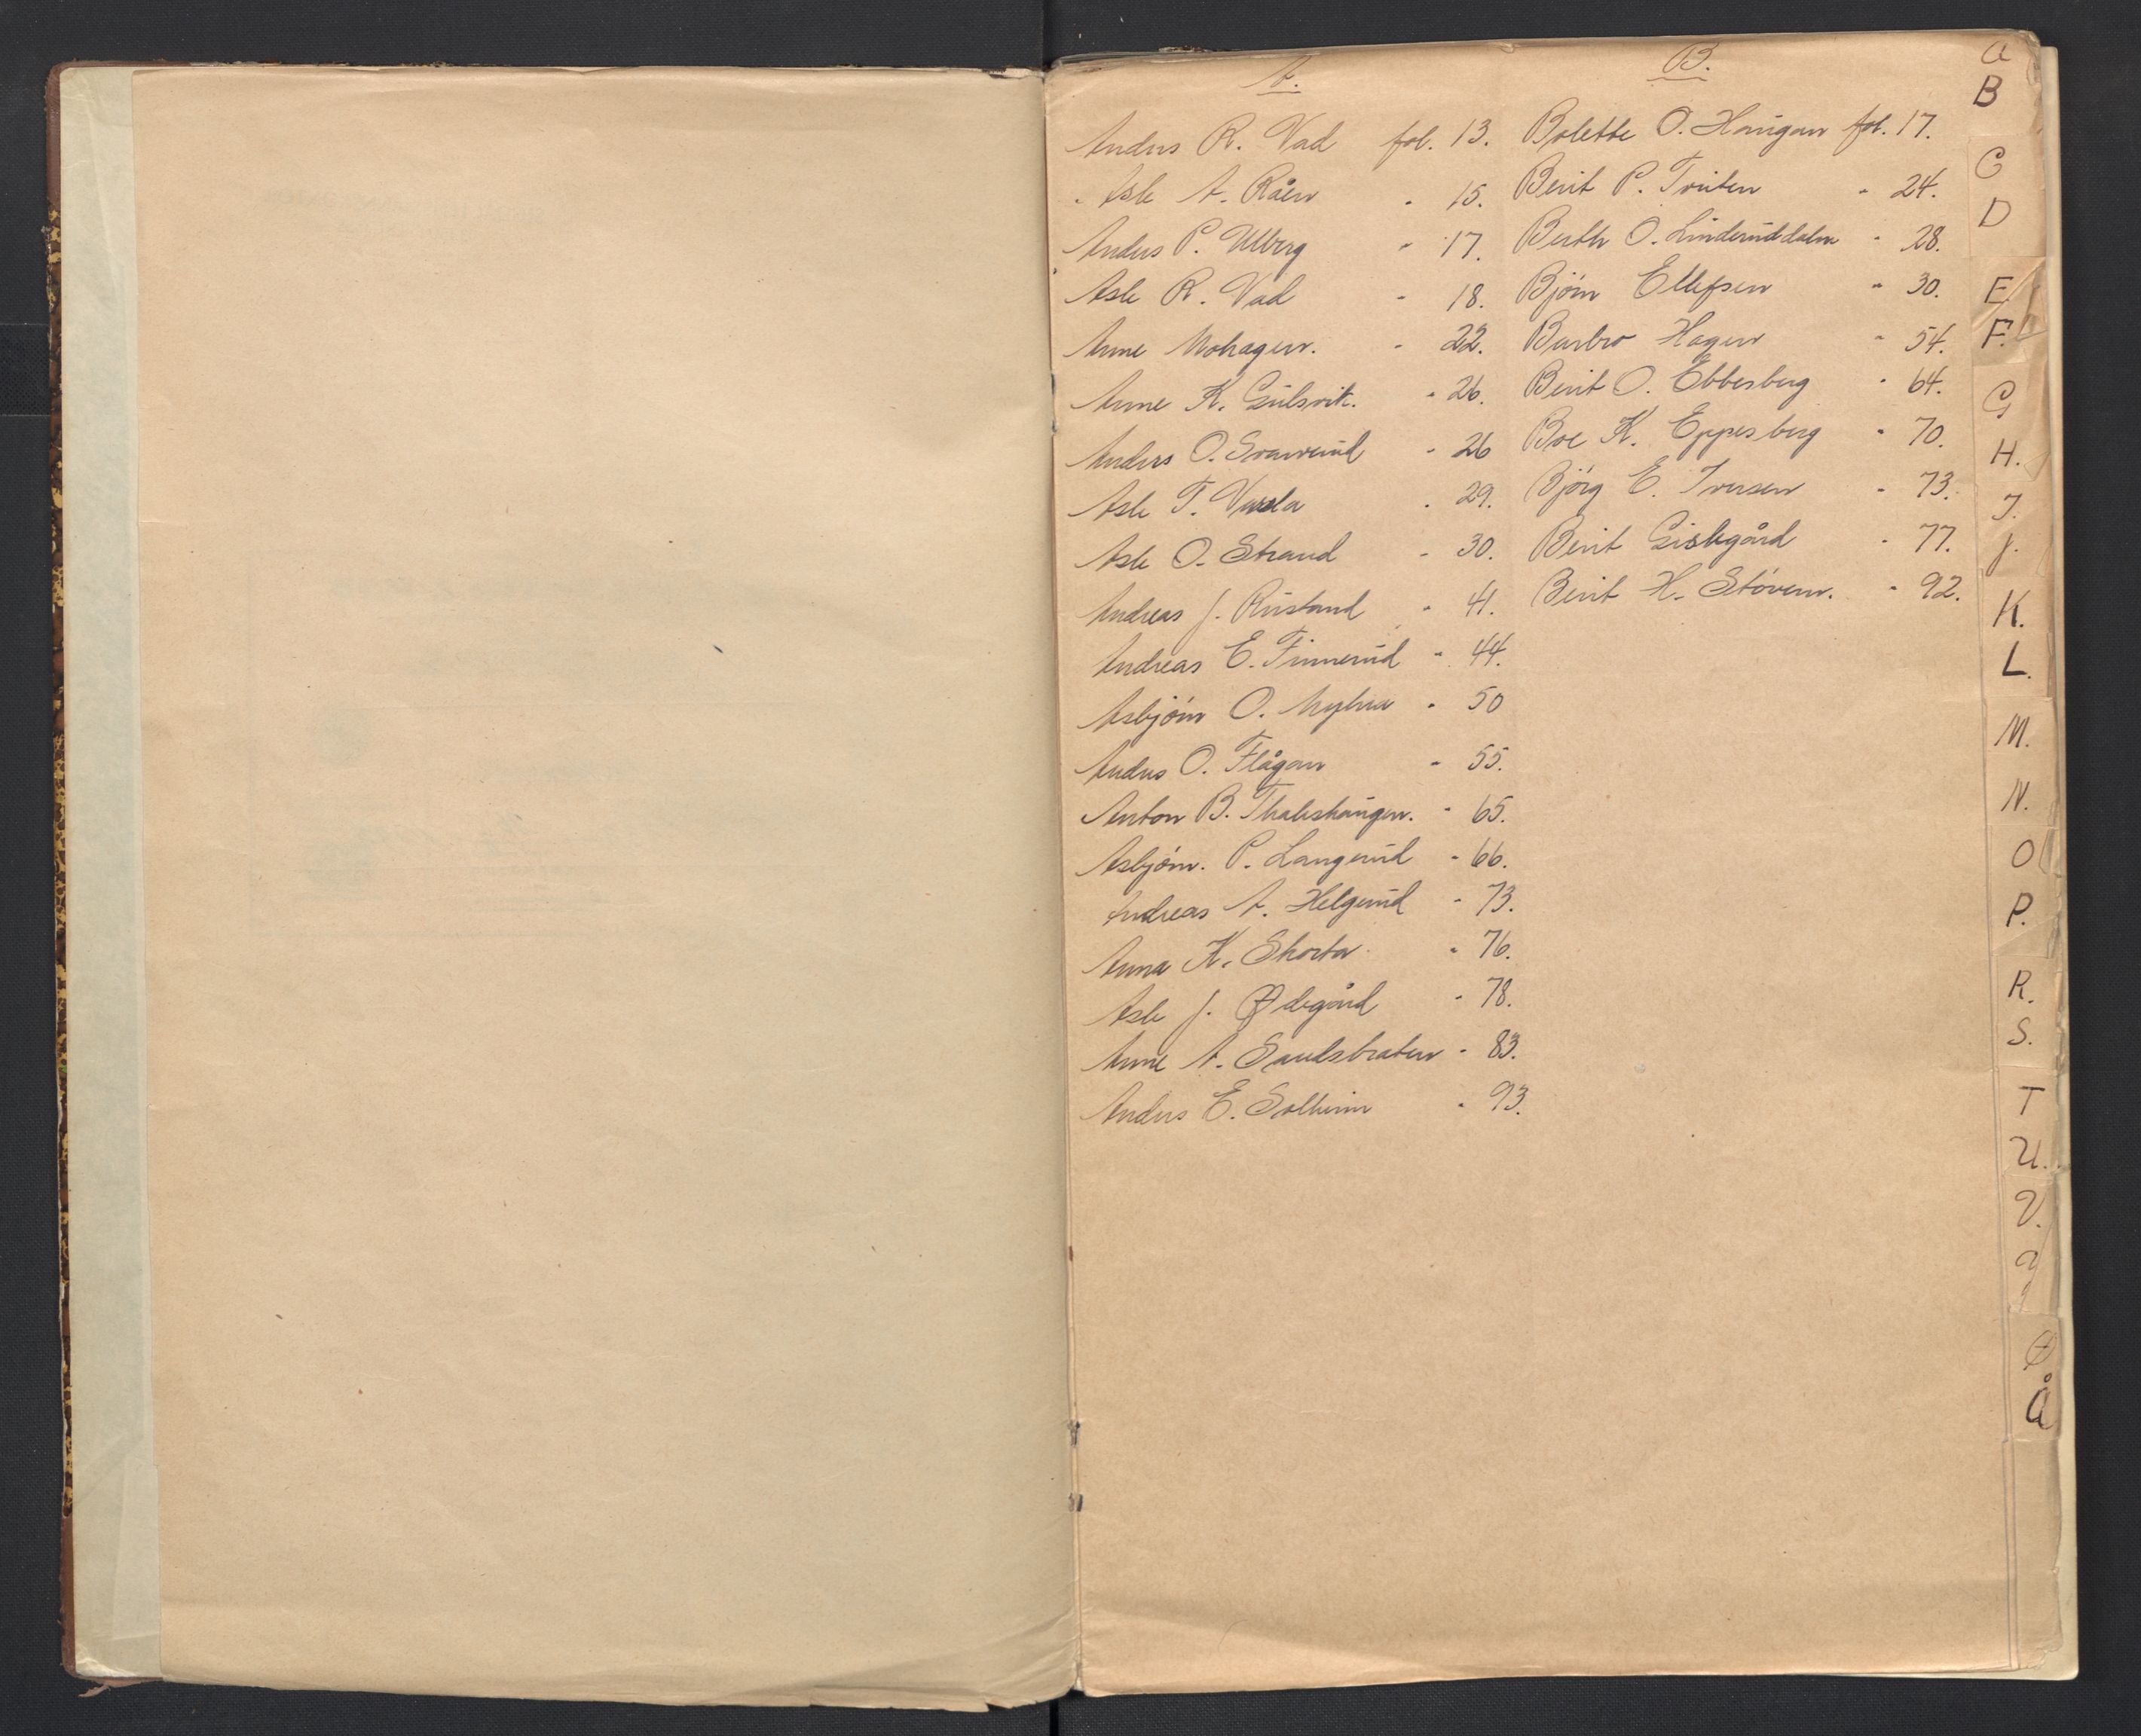 A.
Anders R. Vad fol. 13.
Asle A. Råen " 15.
Anders P. Ulberg " 17.
Asle R. Vad " 18.
Anne Mohagen. " 22.
Anne K. Gulsvik. " 26.
Anders O. " 26
Asle T. Varsla " 29.
Asle O. Strand " 30.
Andreas J. Rustand " 41.
Andreas E. Finnerud " 44.
Asbjörn O. Myhra " 50
Anders O. Flågan " 55.
Anton B. " 65.
Asbjörn. P. Langerud " 66.
Andreas A. Helgerud " 73.
Anna K. Skorta " 76.
Asle J. Ødegård " 78.
Anne A. Sandsbraten " 83.
Anders E. Solheim " 93.
B.
Bolette O. Haugan fol. 17.
Berit P. Truten " 24.
Berthe O. Linderuddalen " 28.
Björn Ellefsen " 30.
Barbro Hagen " 54.
Berit O. Ebbesberg " 64.
Boe K. Eppesberg " 70.
Björg E. Iversen " 73.
Berit Gislegård " 77.
Berit H. Støven. " 92.
a
B
C
D
E
F.
G
H.
I.
J.
K.
L.
M.
N.
O
P.
R.
S.
T
U.
V.
Y
Ø
Å